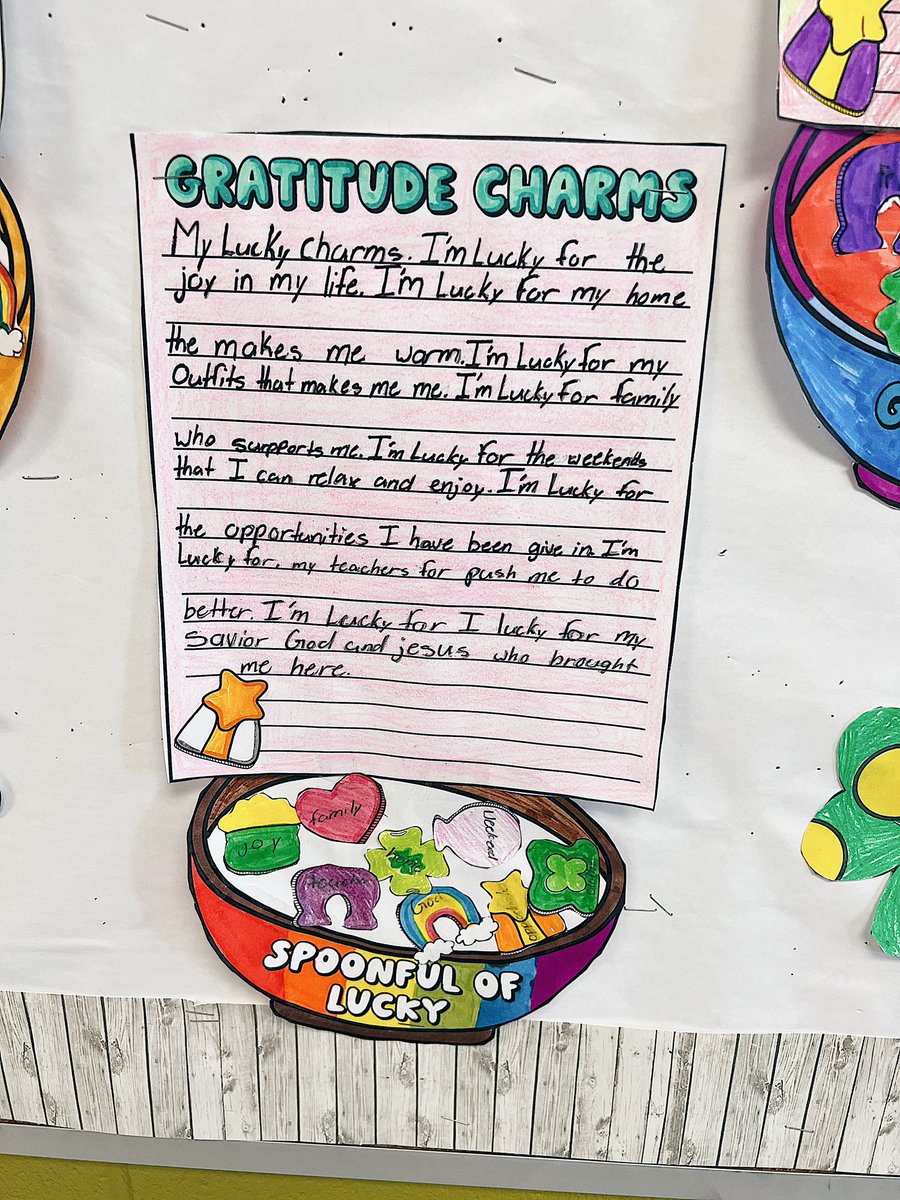 GRATITUDE CHARMS
My Lucky Charms. I'm Lucky for the
joy in my life. I'm Lucky for my home
the makes me warm. I'm Lucky for my
Outfits that makes me me. I'm Lucky for family
who surpports me. I'm Lucky for the weekends
that I can relax and enjoy. I'm Lucky for
the opportunities I have been give in. I'm
Lucky for, my teachers for push me to do
better. I'm Lucky for I lucky for my
Savior God and jesus who brought
me here.
family
joy
Weekend
home
teacher
God
SPOONFUL OF
LUCKY